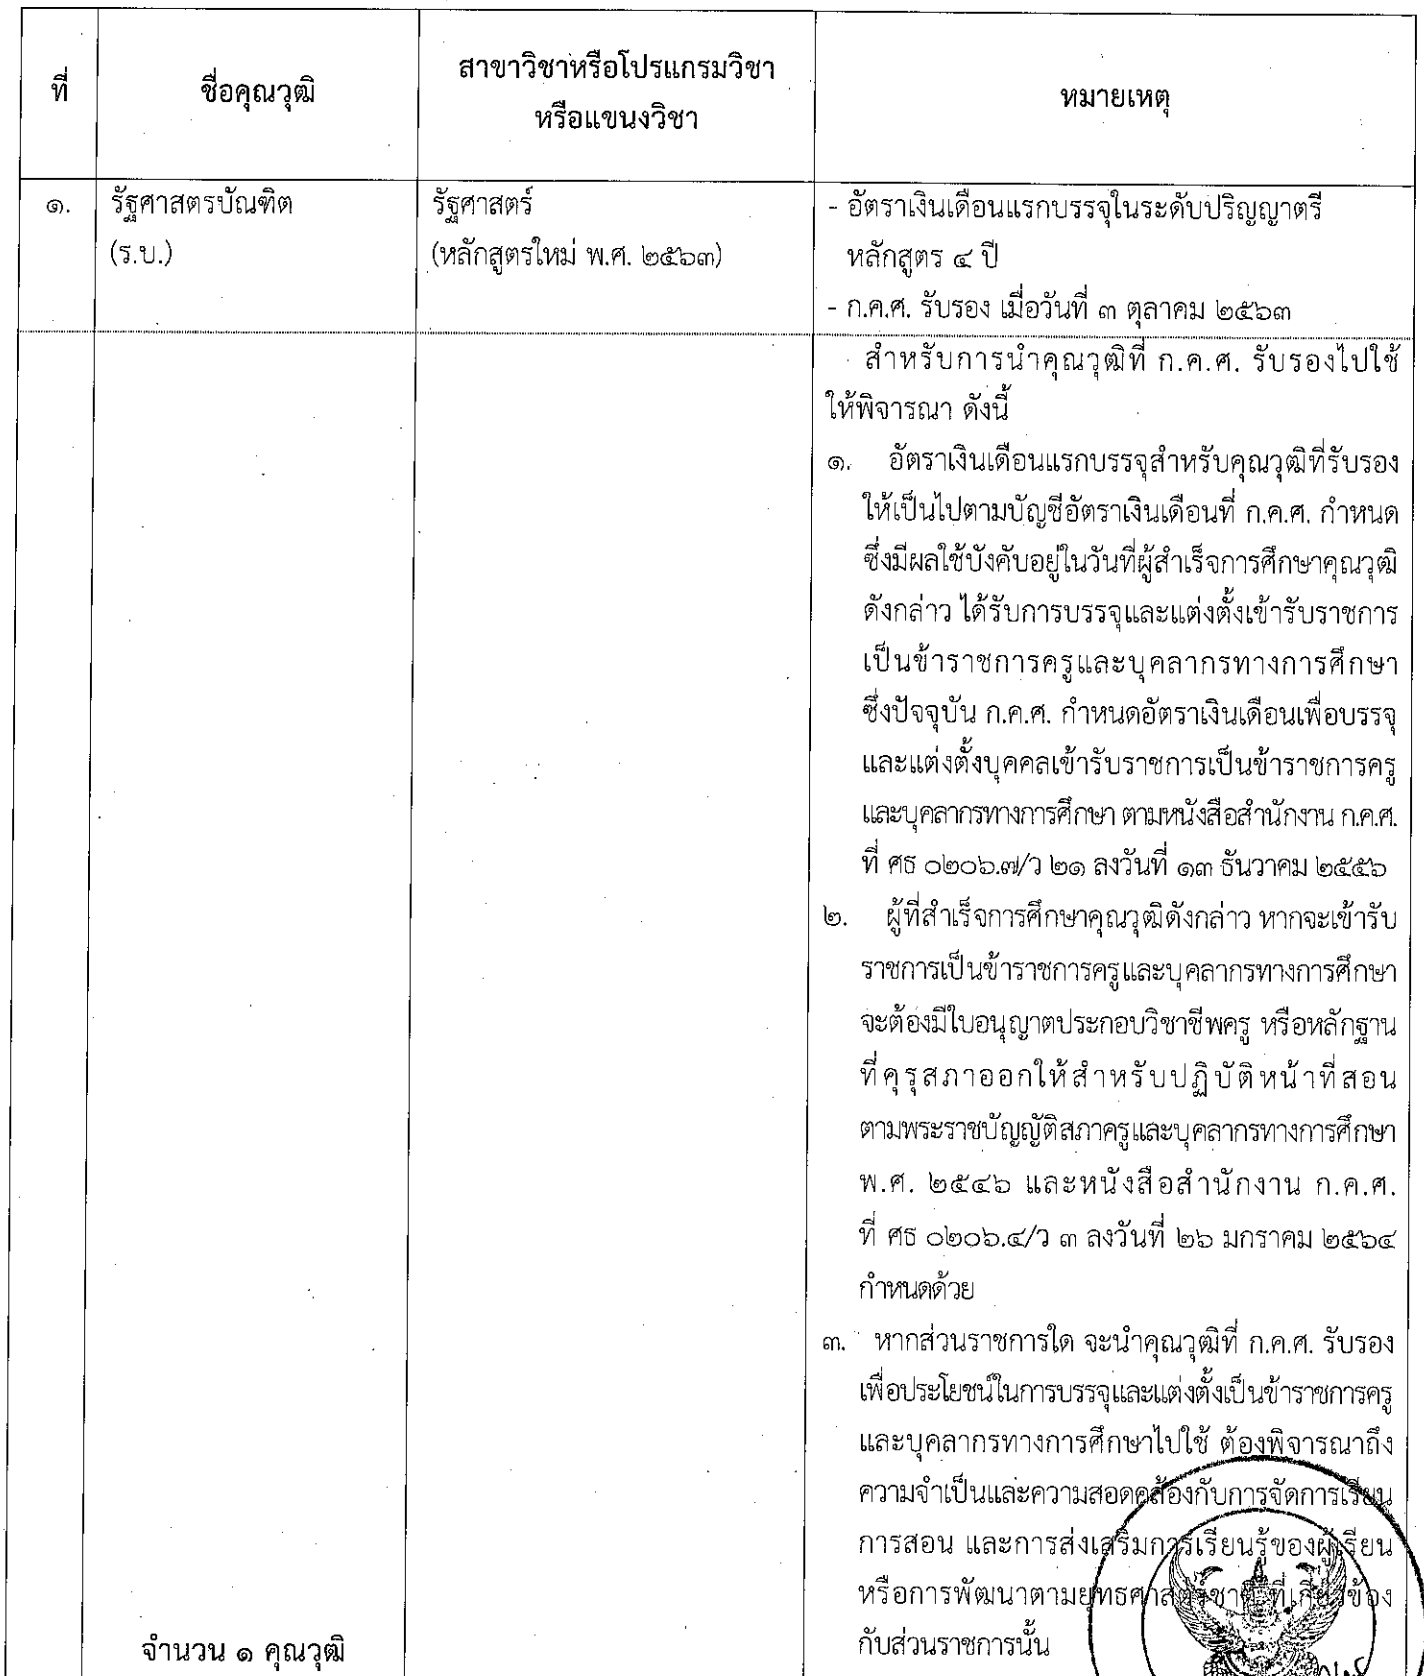 ที่
ชื่อคุณวุฒิ
สาขาวิชาหรือโปรแกรมวิชา
หรือแขนงวิชา
หมายเหตุ
๑.
รัฐศาสตรบัณฑิต
(ร.บ.)
รัฐศาสตร์
(หลักสูตรใหม่ พ.ศ. ๒๕๖๓)
- อัตราเงินเดือนแรกบรรจุในระดับปริญญาตรี
หลักสูตร ๔ ปี
- ก.ค.ศ. รับรอง เมื่อวันที่ ๓ ตุลาคม ๒๕๖๓
สำหรับการนำคุณวุฒิที่ ก.ค.ศ. รับรองไปใช้
ให้พิจารณา ดังนี้
๑. อัตราเงินเดือนแรกบรรจุสำหรับคุณวุฒิที่รับรอง
ให้เป็นไปตามบัญชีอัตราเงินเดือนที่ ก.ค.ศ. กำหนด
ซึ่งมีผลใช้บังคับอยู่ในวันที่ผู้สำเร็จการศึกษาคุณวุฒิ
ดังกล่าว ได้รับการบรรจุและแต่งตั้งเข้ารับราชการ
เป็นข้าราชการครูและบุคลากรทางการศึกษา
ซึ่งปัจจุบัน ก.ค.ศ. กำหนดอัตราเงินเดือนเพื่อบรรจุ
และแต่งตั้งบุคคลเข้ารับราชการเป็นข้าราชการครู
และบุคลากรทางการศึกษา ตามหนังสือสำนักงาน ก.ค.ศ.
ที่ ศธ ๐๒๐๖.๗/ว ๒๑ ลงวันที่ ๑๓ ธันวาคม ๒๕๕๖
๒. ผู้ที่สำเร็จการศึกษาคุณวุฒิดังกล่าว หากจะเข้ารับ
ราชการเป็นข้าราชการครูและบุคลากรทางการศึกษา
จะต้องมีใบอนุญาตประกอบวิชาชีพครู หรือหลักฐาน
ที่คุรุสภาออกให้สำหรับปฏิบัติหน้าที่สอน
ตามพระราชบัญญัติสภาครูและบุคลากรทางการศึกษา
พ.ศ. ๒๕๔๖ และหนังสือสำนักงาน ก.ค.ศ.
ที่ ศธ ๐๒๐๖.๔/ว ๓ ลงวันที่ ๒๖ มกราคม ๒๕๖๔
กำหนดด้วย
๓. หากส่วนราชการใด จะนำคุณวุฒิที่ ก.ค.ศ. รับรอง
เพื่อประโยชน์ในการบรรจุและแต่งตั้งเป็นข้าราชการครู
และบุคลากรทางการศึกษาไปใช้ ต้องพิจารณาถึง
ความจำเป็นและความสอดคล้องกับการจัดการเรียน
การสอน และการส่งเสริมการเรียนรู้ของผู้เรียน
หรือการพัฒนาตามยุทธศาสตร์ชาติ ที่เกี่ยวข้อง
กับส่วนราชการนั้น
จำนวน ๑ คุณวุฒิ